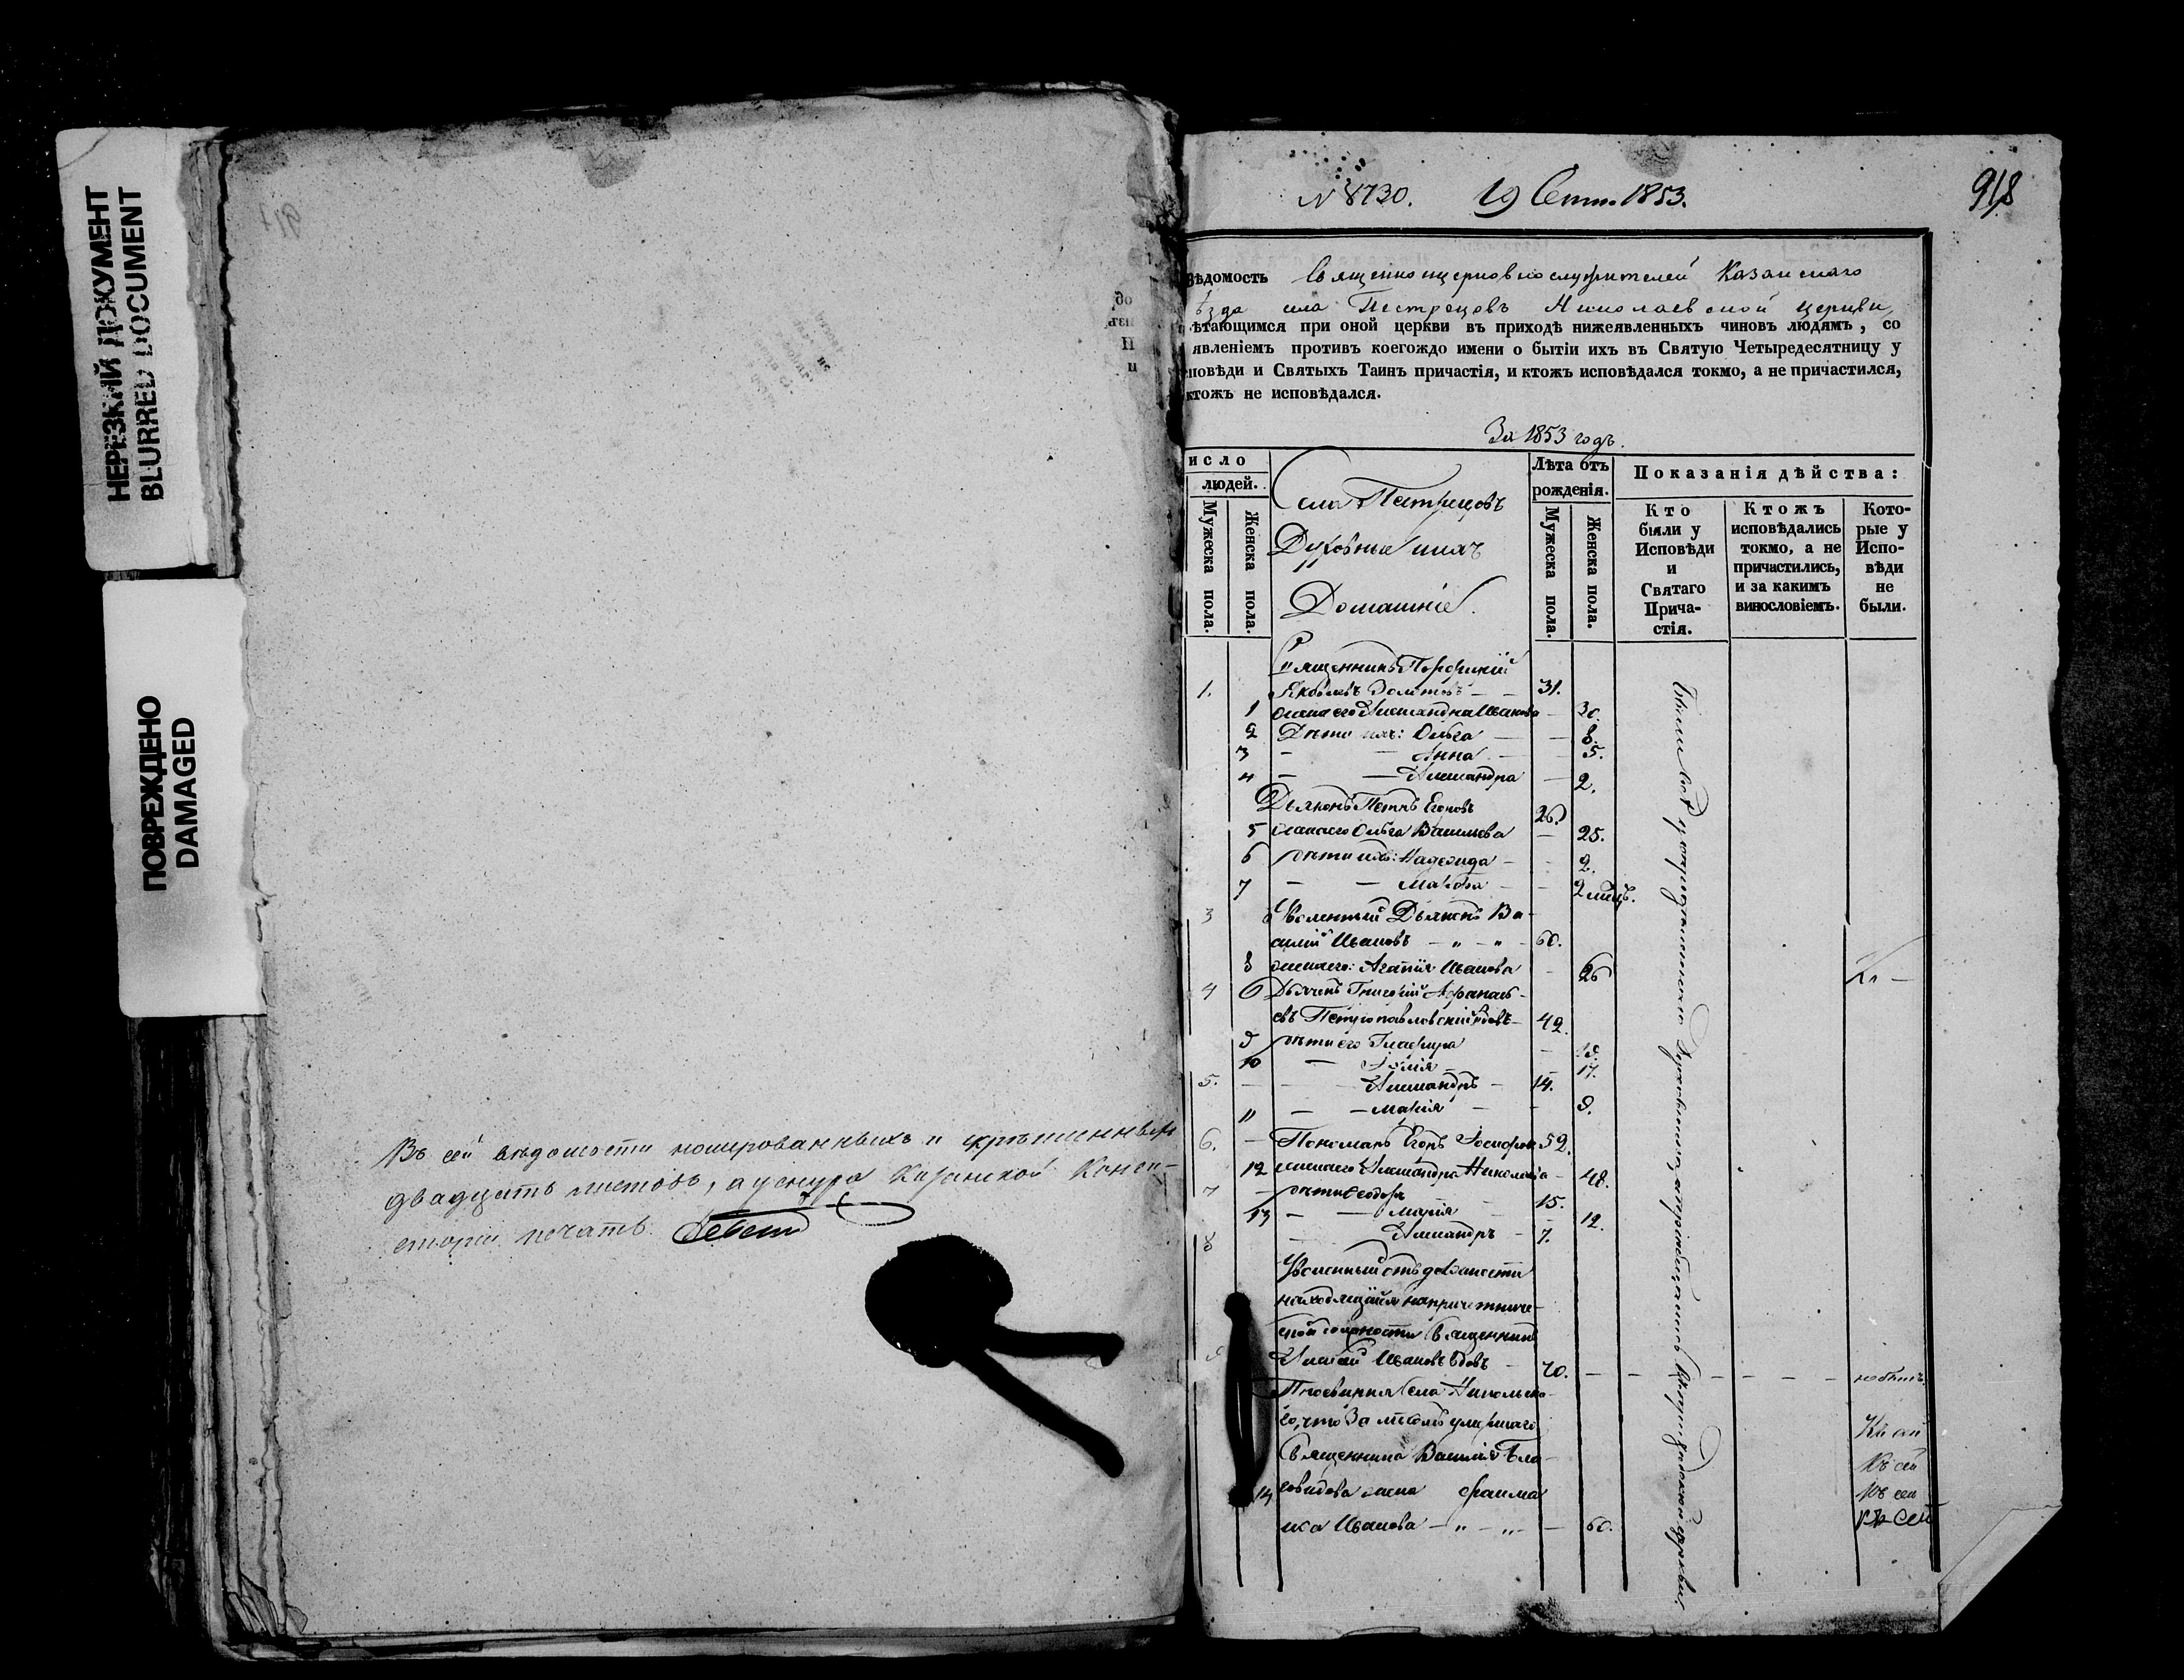 НЕРЕЗКИЙ ДОКУМЕНТ
BLURRED DOCUMENT
ПОВРЕЖДЕНО
DAMAGED
Въ сей ведомости номерованныхъ и
двадцать листовъ, а уснура Казанской Конси-
сторіи печать.
N 8730. 19 Сент. 1853.
918
Вѣдомость Священноцерковнослужителей Казанскаго
ѣзда села Пестрецовъ Николаевской церкви,
ѣтающимся при оной церкви въ приходѣ нижеявленныхъ чиновъ людямъ, со
явленіемъ противъ коегождо имени о бытіи ихъ въ Святую Четыредесятницу у
повѣди и Святыхъ Таинъ причастія, и ктожъ исповѣдался токмо, а не причастился,
ктожъ не исповѣдался.
За 1853 годъ.
исло
людей.
Мужеска пола.
Женска пола.
Села Пестрецовъ
Духовныя ихъ
Домашніе.
Лѣта отъ
рожденія.
Мужеска пола.
Женска пола.
Показанія дѣйства:
Кто
были у
Исповѣди
и
Святаго
Прича-
стія.
Ктожъ
исповѣдались
токмо, а не
причастились,
и за какимъ
винословіемъ.
Кото-
рые у
Испо-
вѣди
не
были.
Священникъ Порфирій
1. Яковлевъ 31.
1 жена его Александра Иванова 30.
2 Дѣти ихъ: Ольга 8.
3 Анна 5.
4 Александра 2.
Дьяконъ Петръ Егоровъ 26.
5 жена его Ольга Васильева 25.
6 дѣти ихъ: Надежда 2.
7 2 мѣс.
3 Уволенный Дьяконъ Ва-
силій Ивановъ 60.
8 жена его: Агапія Иванова 26
4 Дьячекъ Григорій Афанась-
евъ Петропавловскій вдовъ 42.
9 дѣти его Глафира
10 Юлія 17.
5. Александръ 14.
11 Марія 9.
6. Пономарь Егоръ Іосифовъ 52.
12 жена его Александра Николаева 48.
7 дѣти Ѳедоръ 15.
13 Марія 12.
8 Александръ 7.
Уволенный отъ должности
находящійся на причетниче-
ской должности Священникъ
9 Алексѣй Ивановъ вдовъ 70. не былъ.
Просвирня Села Никольска-
го, что За умершаго
Священника Василія Бла-
14 говидова жена
Иванова 60.
Къ сей
Къ сей
Къ сей
Къ сей